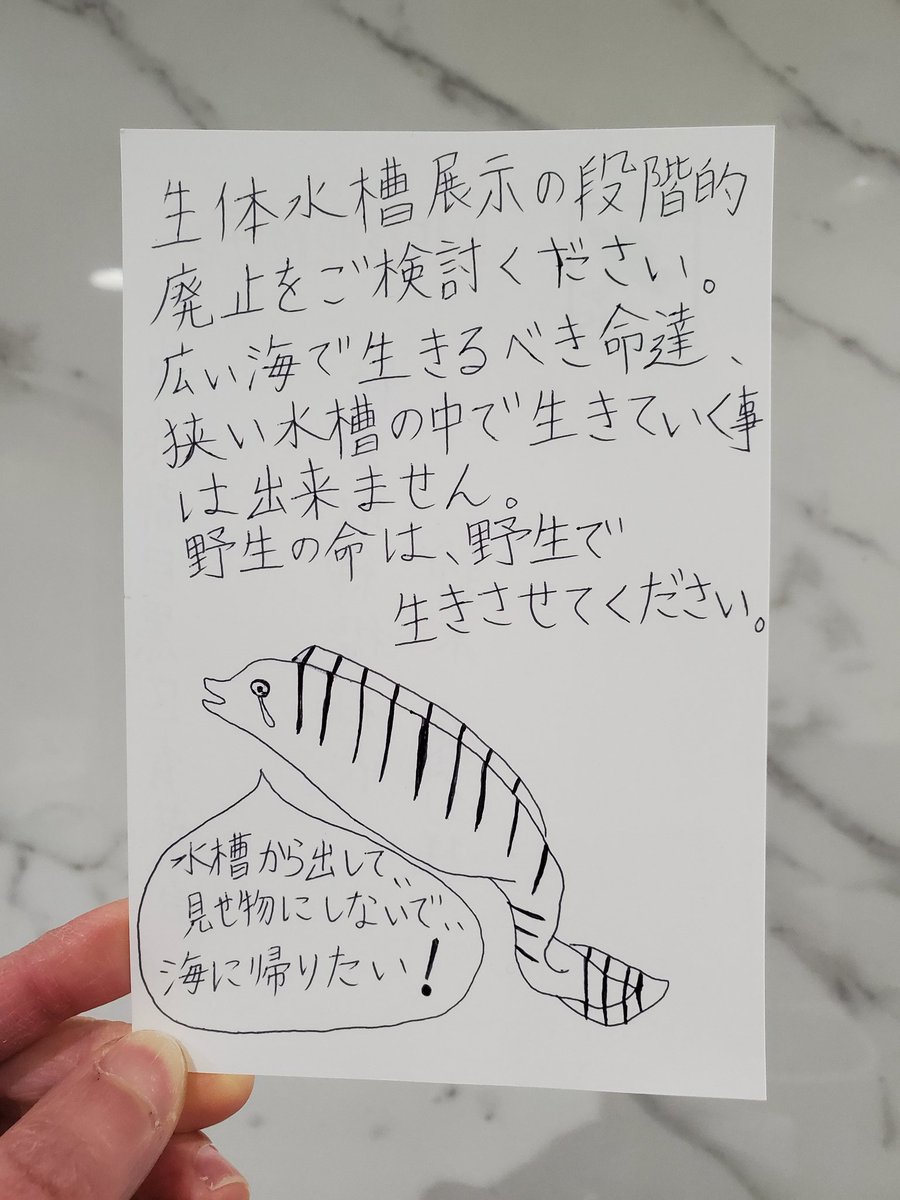 生体水槽展示の段階的
廃止をご検討ください。
広い海で生きるべき命達、
狭い水槽の中で生きていく事
は出来ません。
野生の命は、野生で
生きさせてください。
水槽から出して、、
見せ物にしないで、、
海に帰りたい!